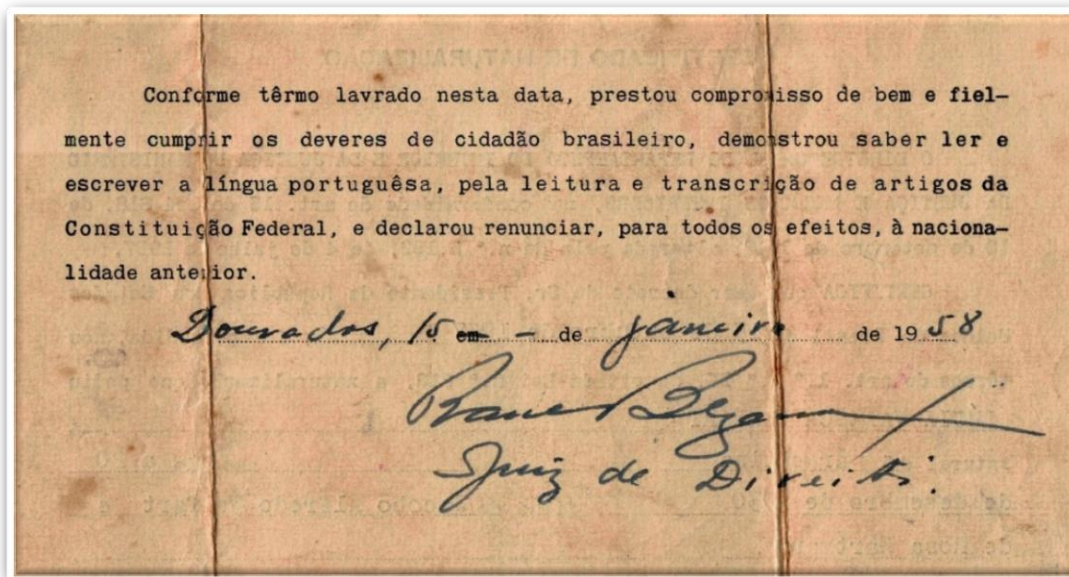 Conforme têrmo lavrado nesta data, prestou compromisso de bem e fiel-
mente cumprir os deveres de cidadão brasileiro, demonstrou saber ler e
escrever a língua portuguêsa, pela leitura e transcrição de artigos da
Constituição Federal, e declarou renunciar, para todos os efeitos, à naciona-
lidade anterior.
Dourados, 15 em - de janeiro de 1958
Juiz de Direito.